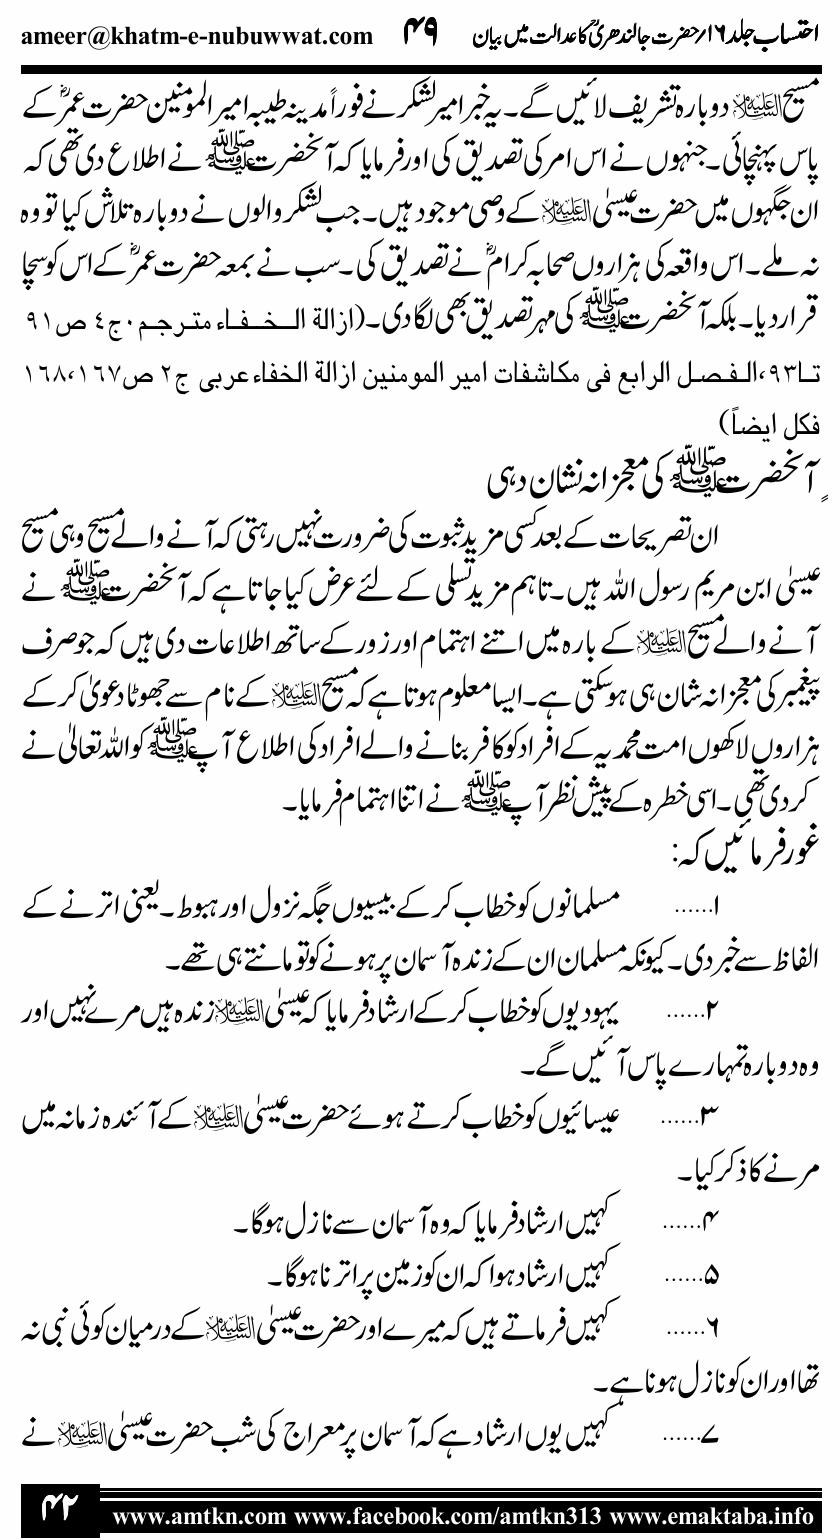 احتساب جلد ۱۶/حضرت جالندھریؒ کا عدالت میں بیان ۴۹ ameer@khatm-e-nubuwwat.com
مسیح علیہ السلام دوبارہ تشریف لائیں گے۔ یہ خبر امیر لشکر نے فوراً مدینہ طیبہ امیر المومنین حضرت عمرؓ کے
پاس پہنچائی۔ جنہوں نے اس امر کی تصدیق کی اور فرمایا کہ آنحضرت ﷺ نے اطلاع دی تھی کہ
ان جگہوں میں حضرت عیسیٰ علیہ السلام کے وصی موجود ہیں۔ جب لشکر والوں نے دوبارہ تلاش کیا تو وہ
نہ ملے۔ اس واقعہ کی ہزاروں صحابہ کرامؓ نے تصدیق کی۔ سب نے بمعہ حضرت عمرؓ کے اس کو سچا
قرار دیا۔ بلکہ آنحضرت ﷺ کی مہر تصدیق بھی لگا دی۔ (ازالۃ الخفاء مترجم۰ج٤ ص٩١
تا٩٣،الفصل الرابع فی مکاشفات امیر المومنین ازالۃ الخفاء عربی ج٢ ص١٦٧،١٦٨
فکل ایضاً)
آنحضرت ﷺ کی معجزانہ نشان دہی
ان تصریحات کے بعد کسی مزید ثبوت کی ضرورت نہیں رہتی کہ آنے والے مسیح وہی مسیح
عیسیٰ ابن مریم رسول اللہ ہیں۔ تاہم مزید تسلی کے لئے عرض کیا جاتا ہے کہ آنحضرت ﷺ نے
آنے والے مسیح علیہ السلام کے بارہ میں اتنے اہتمام اور زور کے ساتھ اطلاعات دی ہیں کہ جو صرف
پیغمبر کی معجزانہ شان ہی ہوسکتی ہے۔ ایسا معلوم ہوتا ہے کہ مسیح علیہ السلام کے نام سے جھوٹا دعویٰ کر کے
ہزاروں لاکھوں امت محمدیہ کے افراد کو کافر بنانے والے افراد کی اطلاع آپ ﷺ کو اللہ تعالیٰ نے
کر دی تھی۔ اسی خطرہ کے پیش نظر آپ ﷺ نے اتنا اہتمام فرمایا۔
غور فرمائیں کہ:
۱...... مسلمانوں کو خطاب کر کے بیسیوں جگہ نزول اور ہبوط۔ یعنی اترنے کے
الفاظ سے خبر دی۔ کیونکہ مسلمان ان کے زندہ آسمان پر ہونے کو تو مانتے ہی تھے۔
۲...... یہودیوں کو خطاب کر کے ارشاد فرمایا کہ عیسیٰ علیہ السلام زندہ ہیں مرے نہیں اور
وہ دوبارہ تمہارے پاس آئیں گے۔
۳...... عیسائیوں کو خطاب کرتے ہوئے حضرت عیسیٰ علیہ السلام کے آئندہ زمانہ میں
مرنے کا ذکر کیا۔
۴...... کہیں ارشاد فرمایا کہ وہ آسمان سے نازل ہوگا۔
۵...... کہیں ارشاد ہوا کہ ان کو زمین پر اترنا ہوگا۔
۶...... کہیں فرماتے ہیں کہ میرے اور حضرت عیسیٰ علیہ السلام کے درمیان کوئی نبی نہ
تھا اور ان کو نازل ہونا ہے۔
۷...... کہیں یوں ارشاد ہے کہ آسمان پر معراج کی شب حضرت عیسیٰ علیہ السلام نے
۴۲ www.amtkn.com www.facebook.com/amtkn313 www.emaktaba.info